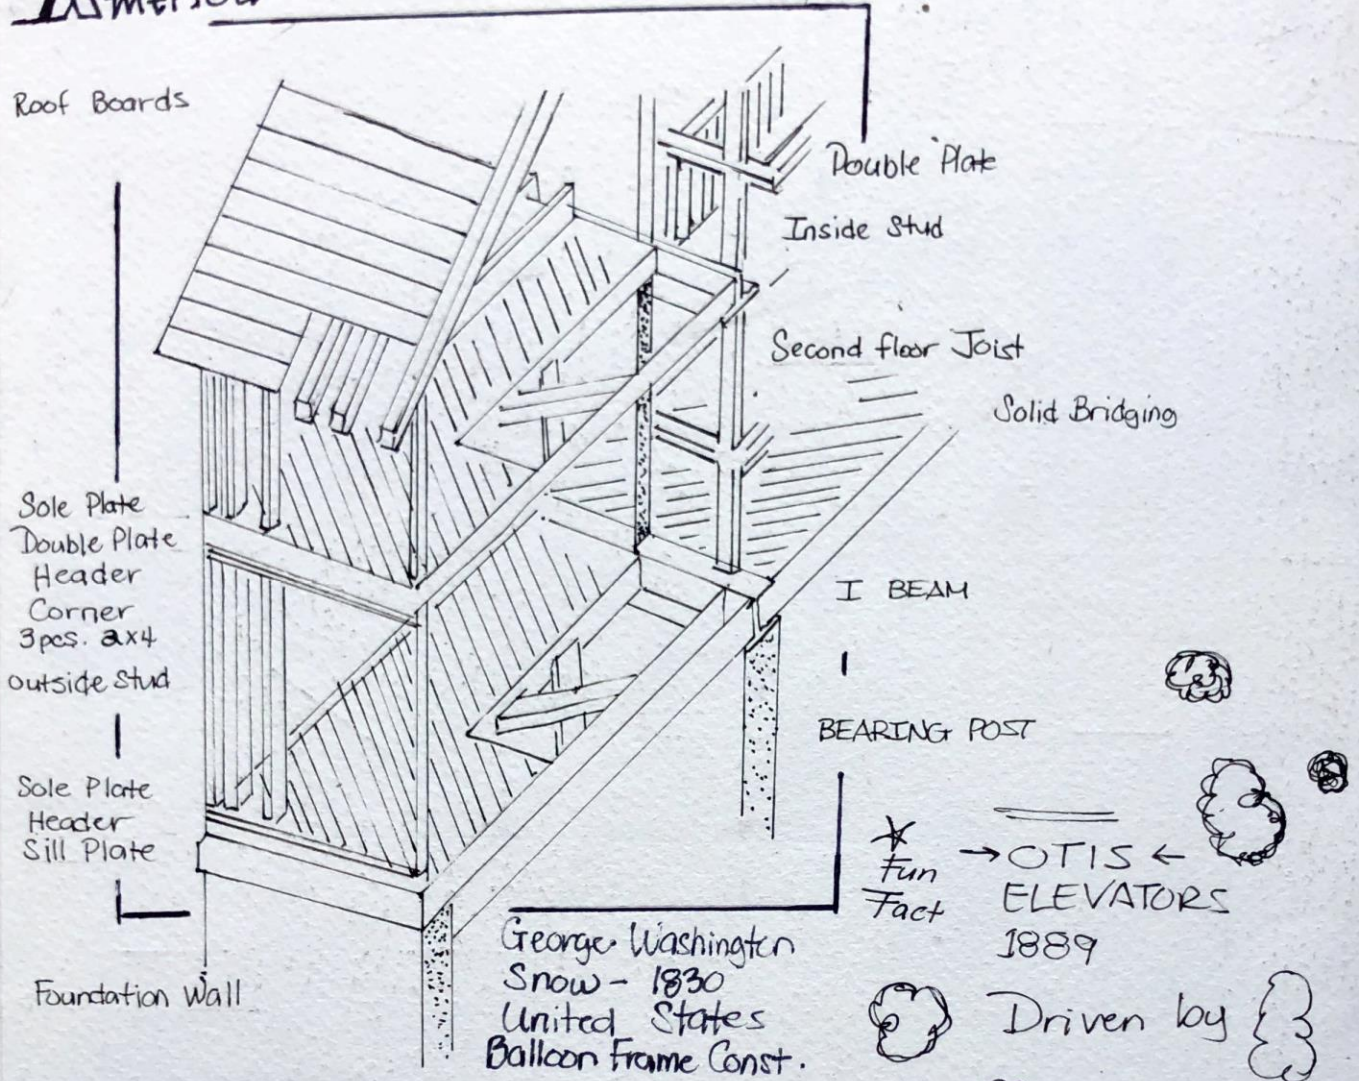 Roof Boards
Double Plate
Inside Stud
Second floor Joist
Solid Bridging
Sole Plate
Double Plate
Header
Corner
3pcs. 2x4
outside stud
I BEAM
BEARING POST
Sole Plate
Header
Sill Plate
Foundation Wall
George Washington
Snow - 1830
United States
Balloon Frame Const.
Fun
Fact
→OTIS←
ELEVATORS
1889
Driven by